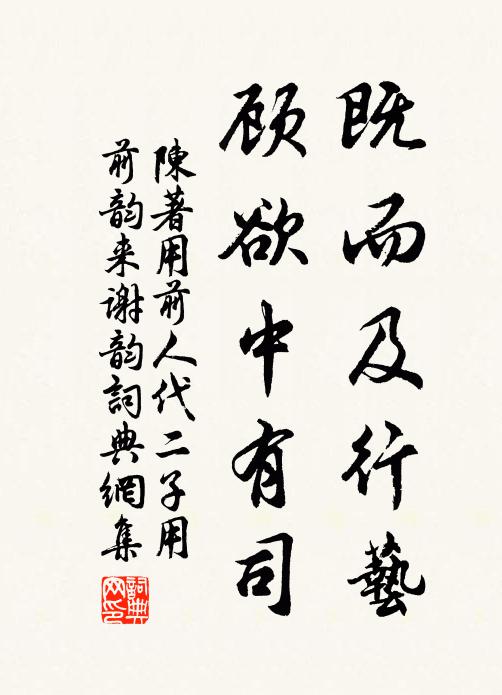 既而及行藝
顾欲中有司
陳著用前人代二子用
前韵来谢韵詞典網集
詞典网印